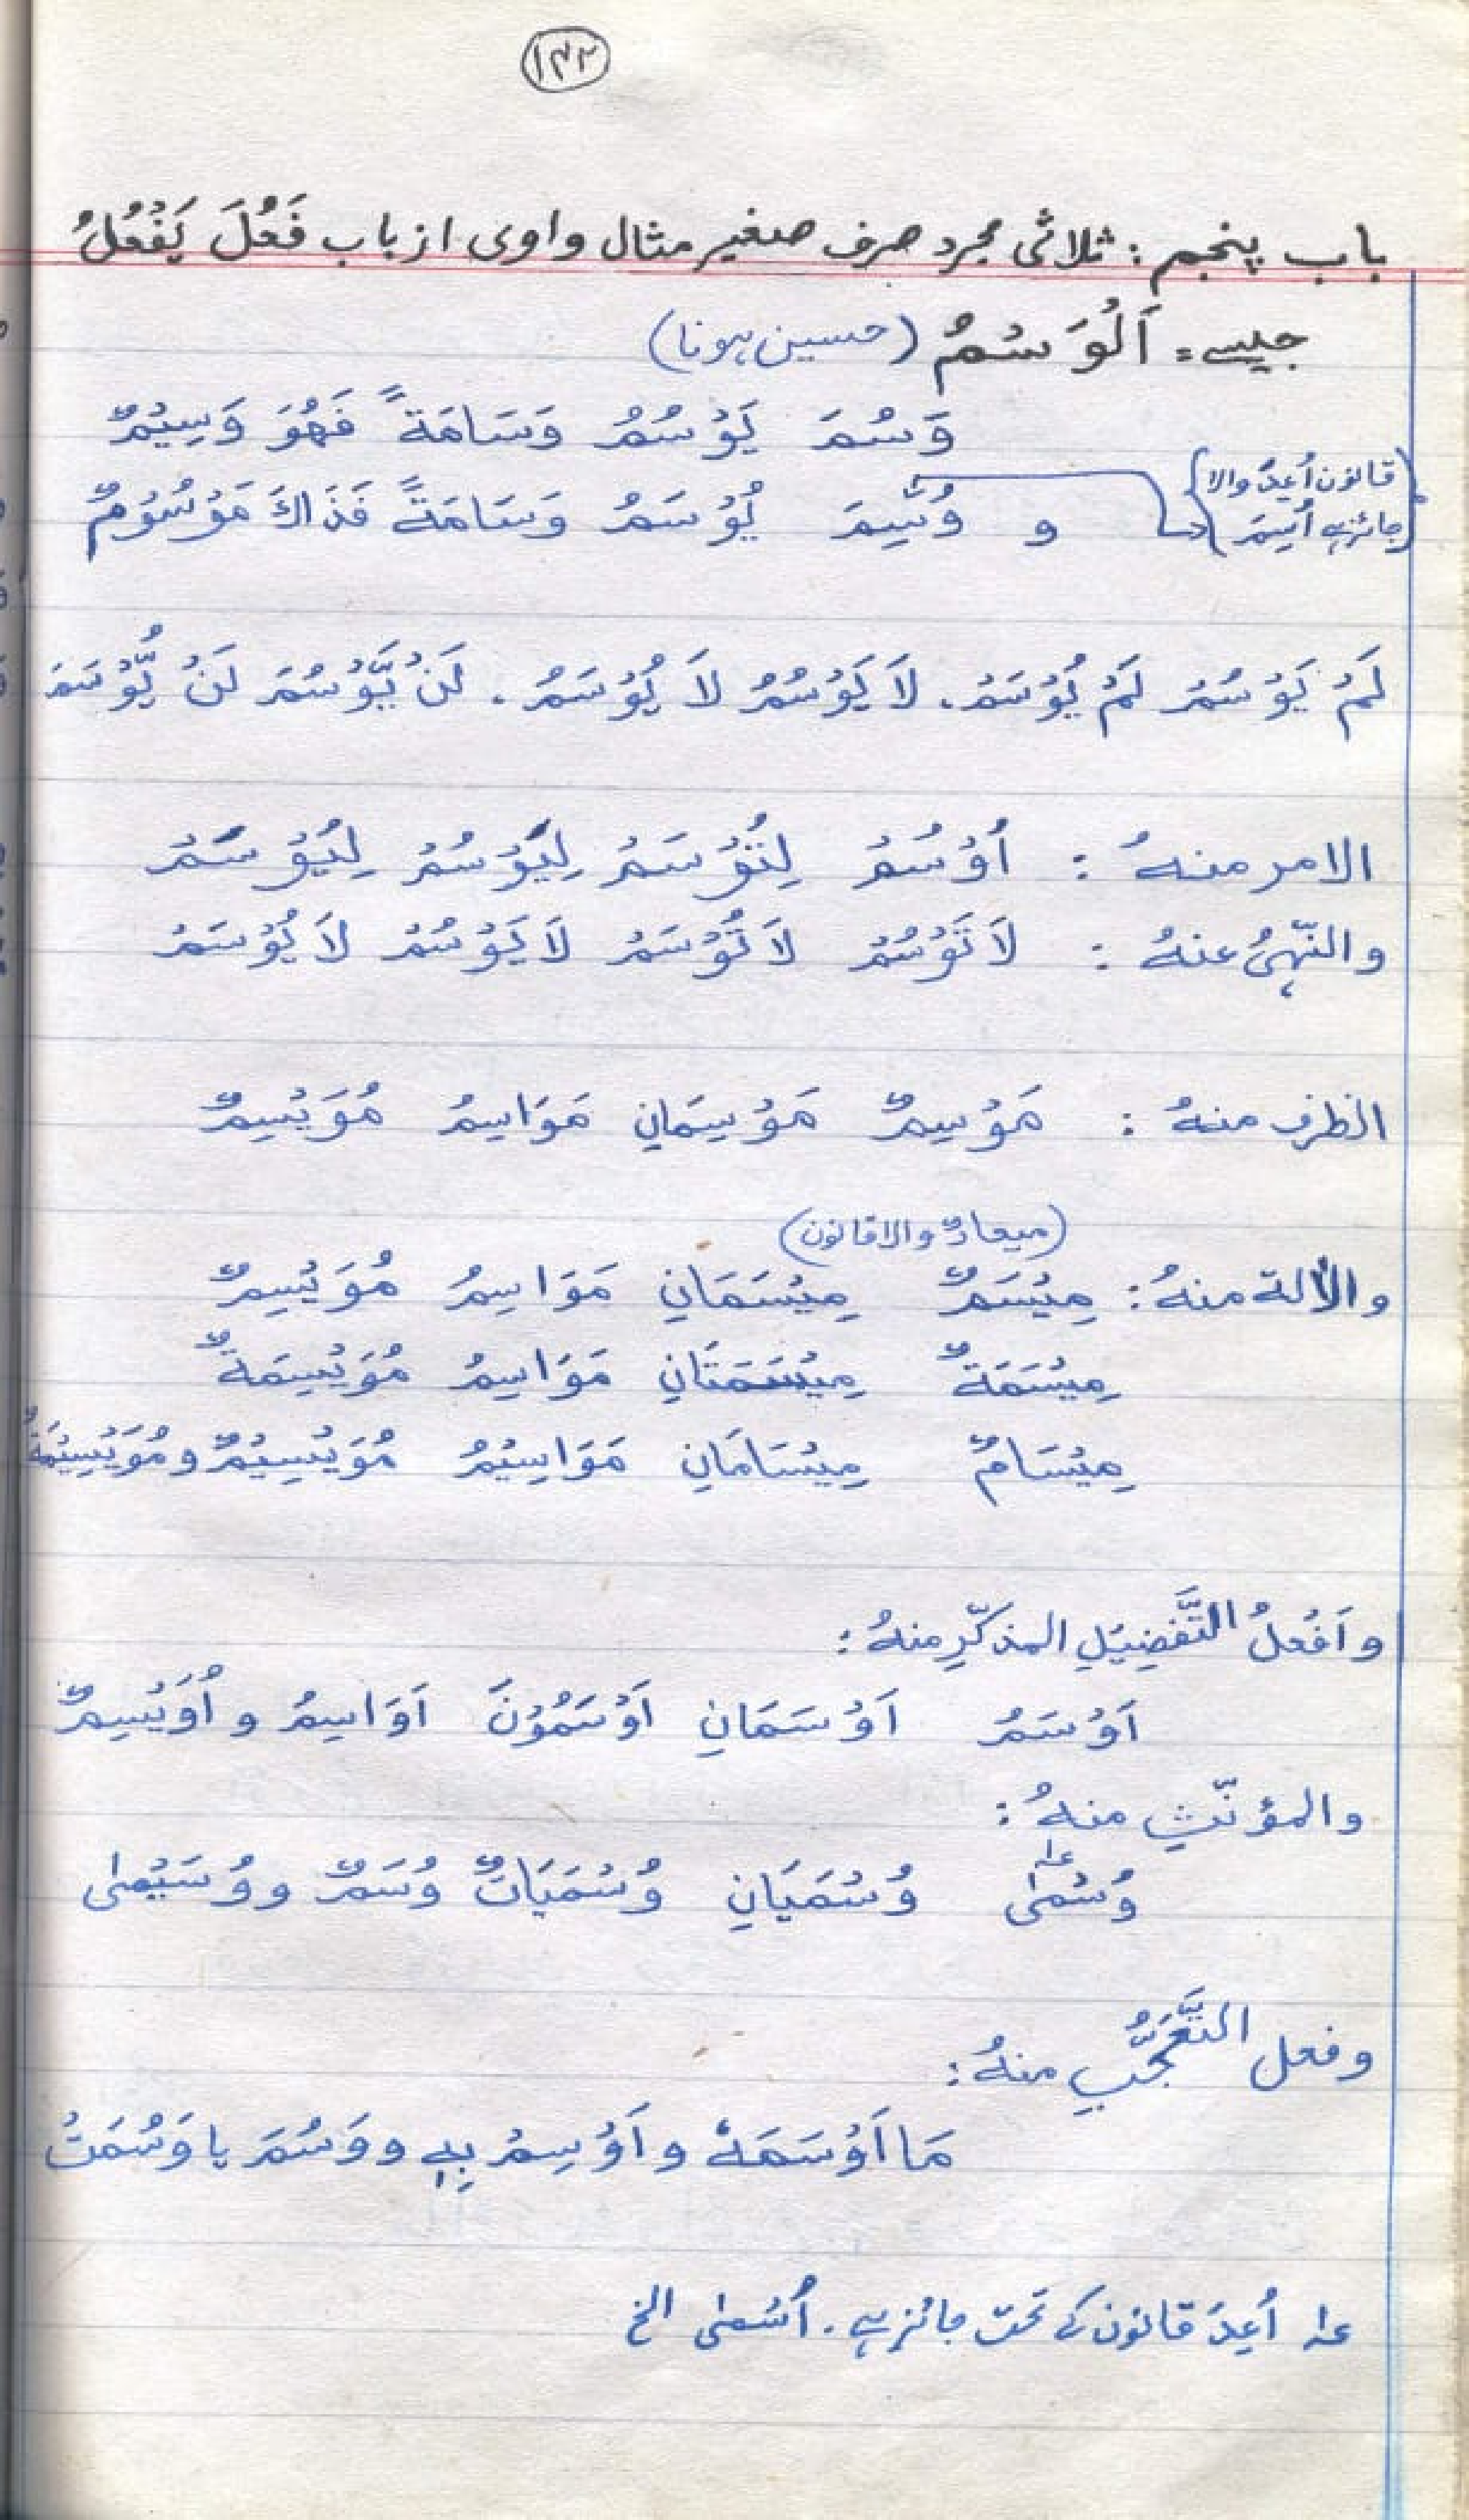 ۱۴۲
باب پنجم : ثلاثی مجرد صرف صغیر مثال واوی از باب فَعُلَ يَفْعُلُ
جیسے = اَلْوَسْمُ (حسین ہونا)
وَسُمَ يَوْسُمُ وَسَامَةً فَهُوَ وَسِيْمٌ
(قانون اُعِدَ والا جائز ہے اُسِمَ) و وُسِمَ يُوْسَمُ وَسَامَةً فَذَاكَ مَوْسُوْمٌ
لَمْ يَوْسُمْ لَمْ يُوْسَمْ. لَا يَوْسُمُ لَا يُوْسَمُ. لَنْ يَّوْسُمَ لَنْ يُّوْسَمَ
الامر منهُ : اُوْسُمْ لِتُوْسَمْ لِيَوْسُمْ لِيُوْسَمْ
والنّهىُ عنهُ : لَا تَوْسُمْ لَا تُوْسَمْ لَا يَوْسُمْ لَا يُوْسَمْ
الظرف منهُ : مَوْسِمٌ مَوْسِمَانِ مَوَاسِمُ مُوَيْسِمٌ
(میعادٌ والا قانون)
والآلة منهُ : مِيْسَمٌ مِيْسَمَانِ مَوَاسِمُ مُوَيْسِمٌ
مِيْسَمَةٌ مِيْسَمَتَانِ مَوَاسِمُ مُوَيْسِمَةٌ
مِيْسَامٌ مِيْسَامَانِ مَوَاسِيْمُ مُوَيْسِيْمٌ و مُوَيْسِيْمَةٌ
و اَفْعلُ التَّفضِيْلِ المذكّرِ منهُ :
اَوْسَمُ اَوْسَمَانِ اَوْسَمُوْنَ اَوَاسِمُ و اُوَيْسِمٌ
والمؤنّثِ منهُ :
وُسْمٰى عـ۱ وُسْمَيَانِ وُسْمَيَاتٌ وُسَمٌ و وُسَيْمٰى
وفعل التَّعَجُّبِ منهُ :
مَا اَوْسَمَهٗ و اَوْسِمْ بِهٖ و وَسُمَ يا وَسُمَتْ
عـ۱ اُعِدَ قانون کے تحت جائز ہے. اُسْمٰى الخ